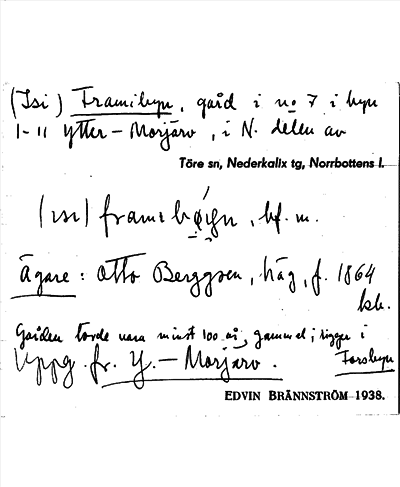 (Isi) Framibyn, gård i no 7 i byn
1-11 Ytter-Morjärv, i N. delen av
Töre sn, Nederkalix tg, Norrbottens l.
(ısı) framıbǿign, bf. m.
Ägare: Otto Berggren, häg, f. 1864
bb.
Gården torde vara minst 100 år gammal; ligger i
Uppg. fr. Y.-Morjärv. Forsbyn
EDVIN BRÄNNSTRÖM 1938.